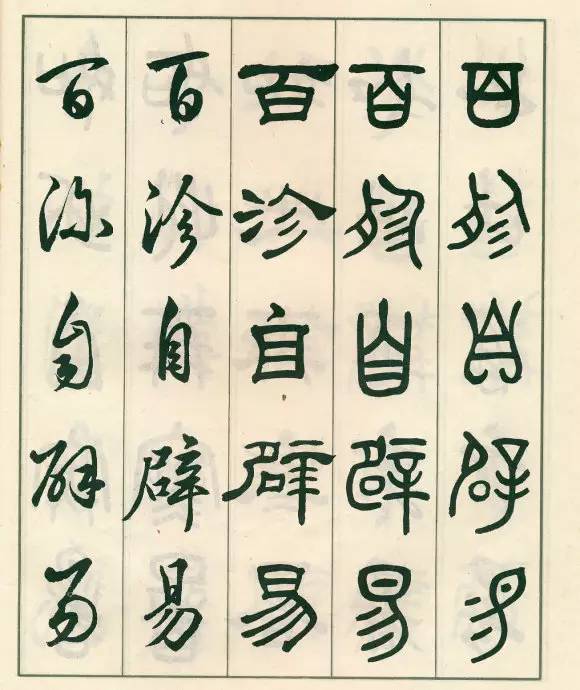 百沴自辟易
百沴自辟易
百沴自辟易
百沴自辟易
百沴自辟易